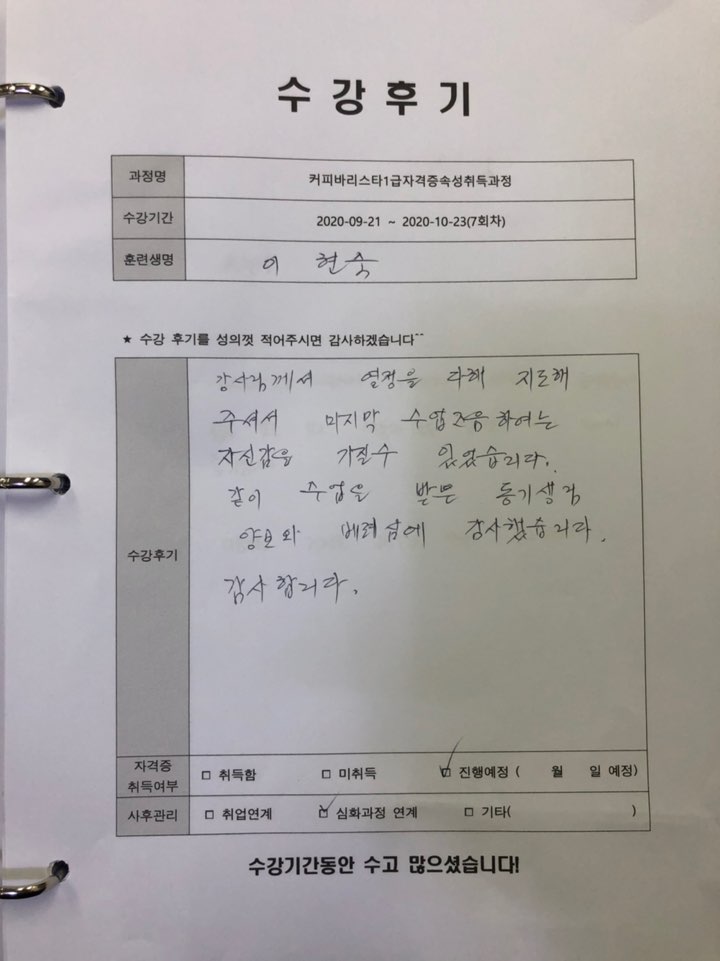 수강후기
과정명 커피바리스타1급자격증속성취득과정
수강기간 2020-09-21 ~ 2020-10-23(7회차)
훈련생명 이 현숙
★ 수강 후기를 성의껏 적어주시면 감사하겠습니다^^
수강후기
강사님께서 열정을 다해 지도해
주셔서 마지막 수업 하여는
자신감을 가질수 있었습니다.
같이 수업을 받은 동기생님
양보와 배려심에 감사했습니다.
감사합니다.
자격증 취득여부 □ 취득함 □ 미취득 ☑ 진행예정 ( 월 일 예정)
사후관리 □ 취업연계 ☑ 심화과정 연계 □ 기타( )
수강기간동안 수고 많으셨습니다!